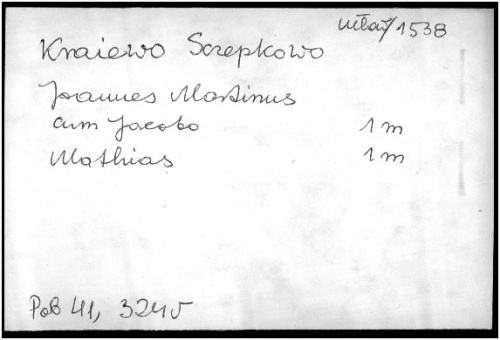 Mław/1538
Kraiewo Screpkowo
Joannes Martinus
cum Jacobo 1 m
Mathias 1 m
Pob 41, 324v